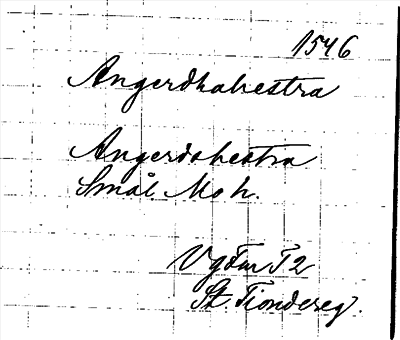 1546
Angerdhahestra
Angerdshestra
Smål. Mo h.
Vg Fur T2
St. Tiondereg.